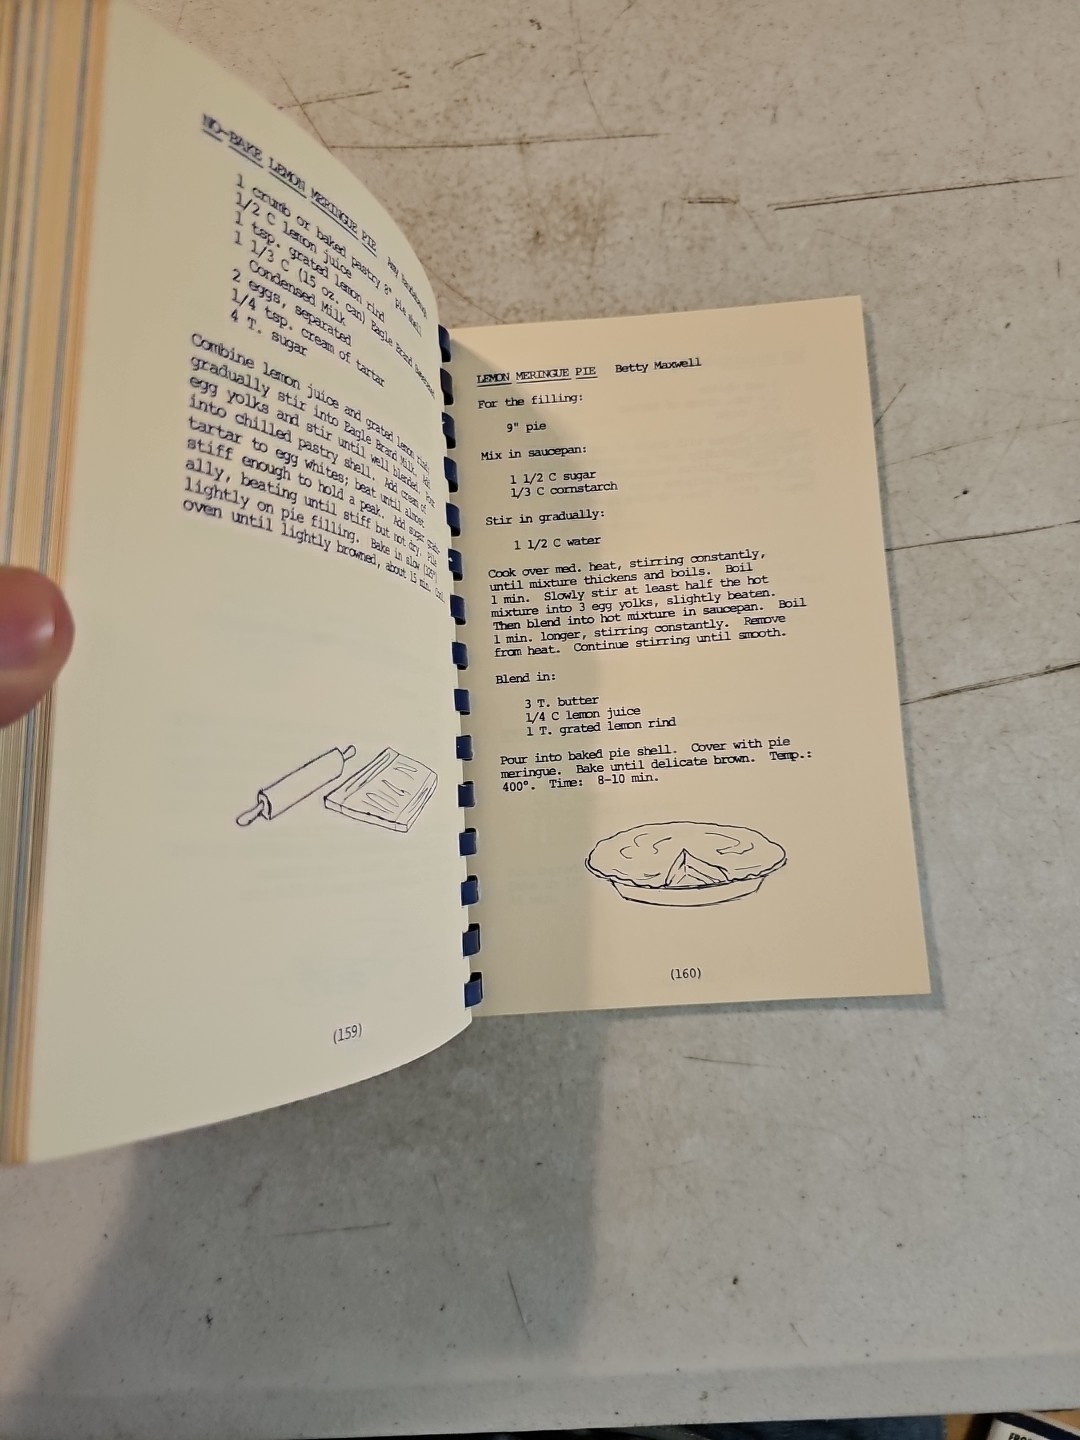 NO-BAKE LEMON MERINGUE PIE
1 crumb or baked pastry 8" pie shell
1/2 C lemon juice
1 tsp. grated lemon rind
1 1/3 C (15 oz. can) Eagle Brand Sweetened
Condensed Milk
2 eggs, separated
1/4 tsp. cream of tartar
4 T. sugar
Combine lemon juice and grated lemon rind;
gradually stir into Eagle Brand Milk. Add
egg yolks and stir until well blended. Pour
into chilled pastry shell. Add cream of
tartar to egg whites; beat until almost
stiff enough to hold a peak. Add sugar gradu-
ally, beating until stiff but not dry. Pile
lightly on pie filling. Bake in slow (325°)
oven until lightly browned, about 15 min. Cool.
(159)
LEMON MERINGUE PIE Betty Maxwell
For the filling:
9" pie
Mix in saucepan:
1 1/2 C sugar
1/3 C cornstarch
Stir in gradually:
1 1/2 C water
Cook over med. heat, stirring constantly,
until mixture thickens and boils. Boil
1 min. Slowly stir at least half the hot
mixture into 3 egg yolks, slightly beaten.
Then blend into hot mixture in saucepan. Boil
1 min. longer, stirring constantly. Remove
from heat. Continue stirring until smooth.
Blend in:
3 T. butter
1/4 C lemon juice
1 T. grated lemon rind
Pour into baked pie shell. Cover with pie
meringue. Bake until delicate brown. Temp.:
400°. Time: 8-10 min.
(160)